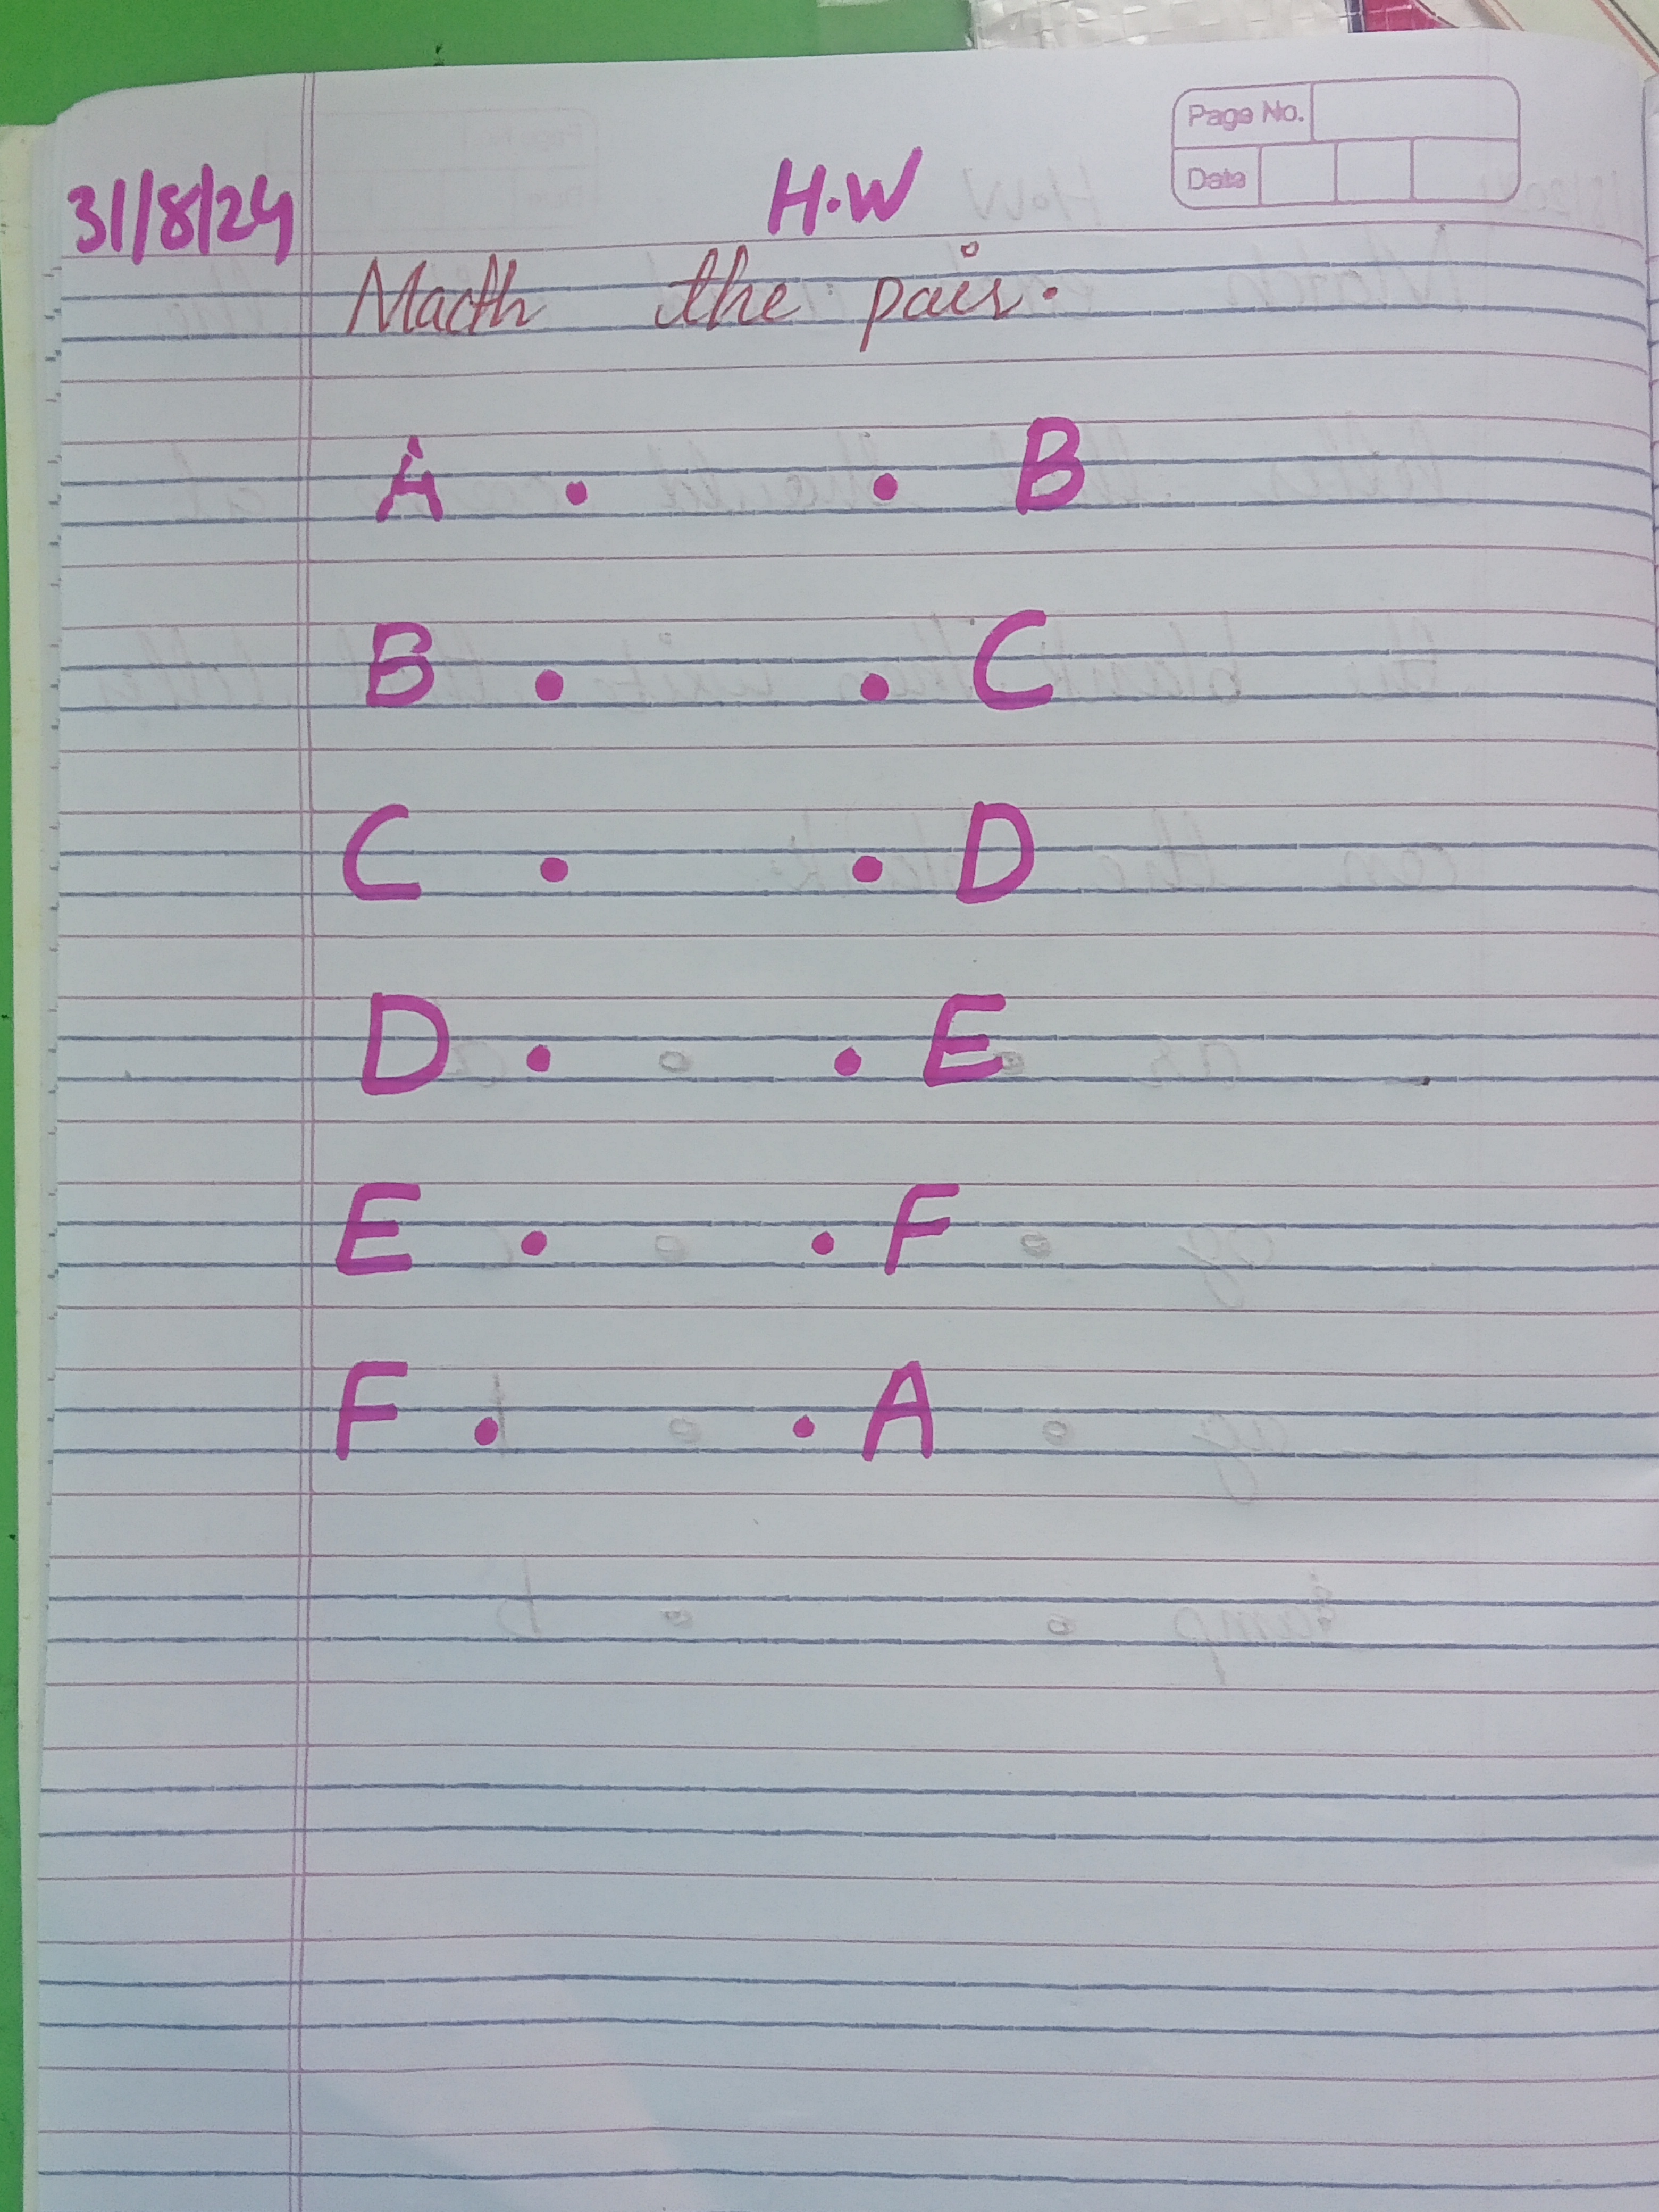 Page No.
Date
31/8/24 H.W
Macth the pair.
A • • B
B • • C
C • • D
D • • E
E • • F
F • • A